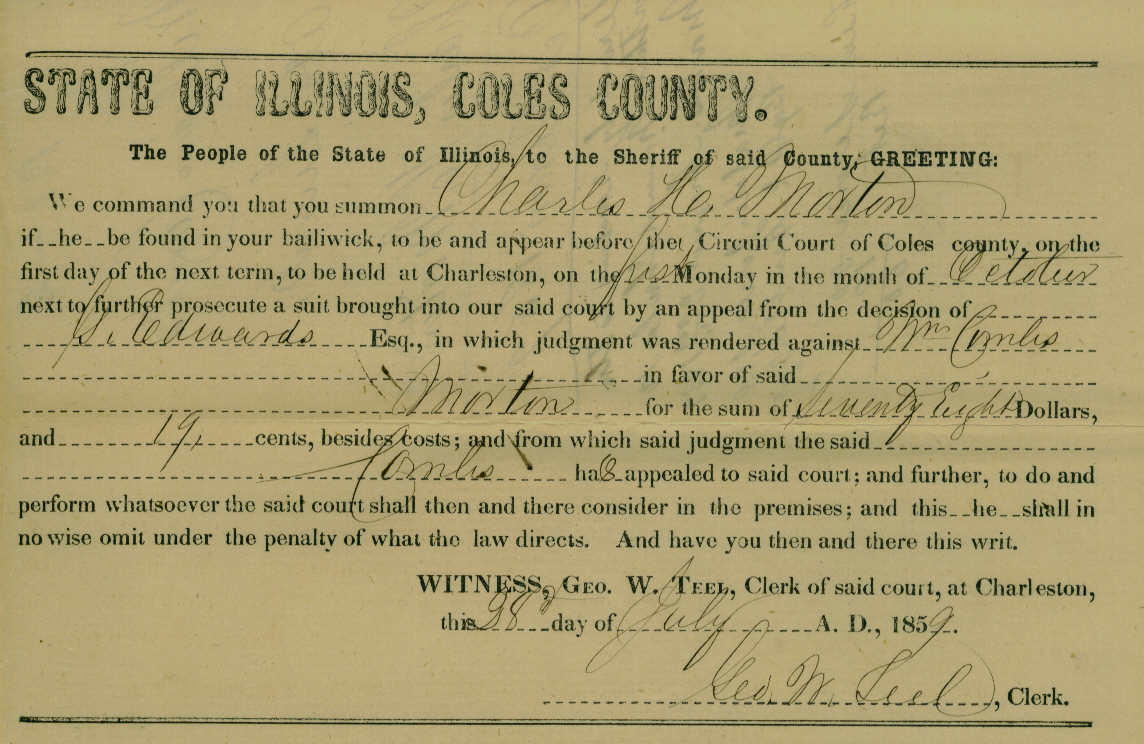 STATE OF ILLINOIS, COLES COUNTY.
The People of the State of Illinois, to the Sheriff of said County, GREETING:
We command you that you summon Charles H. Morton
if he be found in your bailiwick, to be and appear before the Circuit Court of Coles county, on the
first day of the next term, to be held at Charleston, on the first Monday in the month of October
next to further prosecute a suit brought into our said court by an appeal from the decision of
S. Edwards Esq., in which judgment was rendered against Wm Combs
in favor of said
Morton for the sum of Seventy Eight Dollars,
and 19 cents, besides costs; and from which said judgment the said
Combs has appealed to said court; and further, to do and
perform whatsoever the said court shall then and there consider in the premises; and this he shall in
no wise omit under the penalty of what the law directs. And have you then and there this writ.
WITNESS, GEO. W. TEEL, Clerk of said court, at Charleston,
this 28th day of July A. D., 1859.
Geo. W. Teel, Clerk.